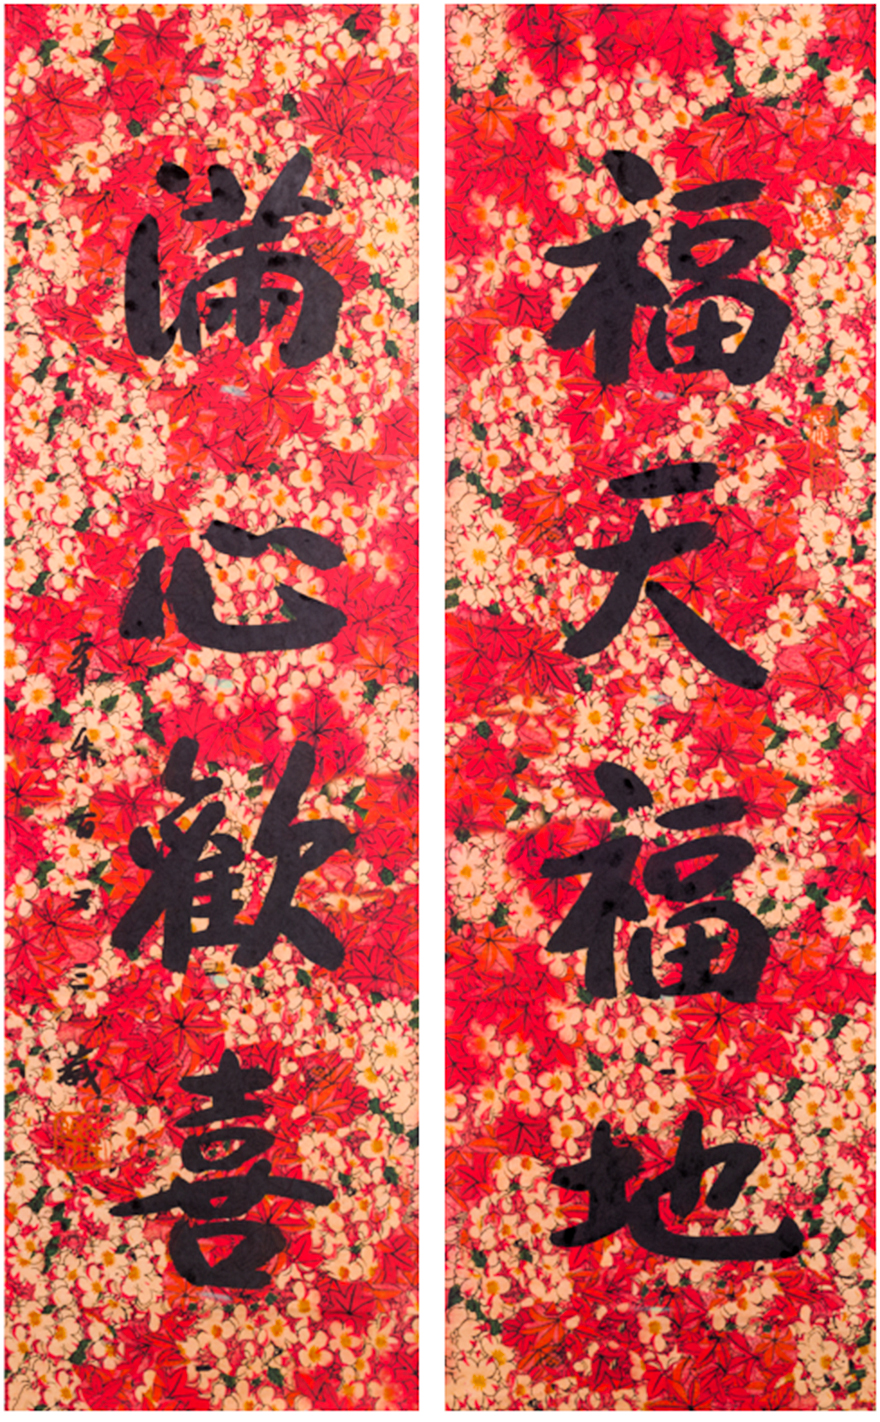 福天福地
滿心歡喜
百又三歲